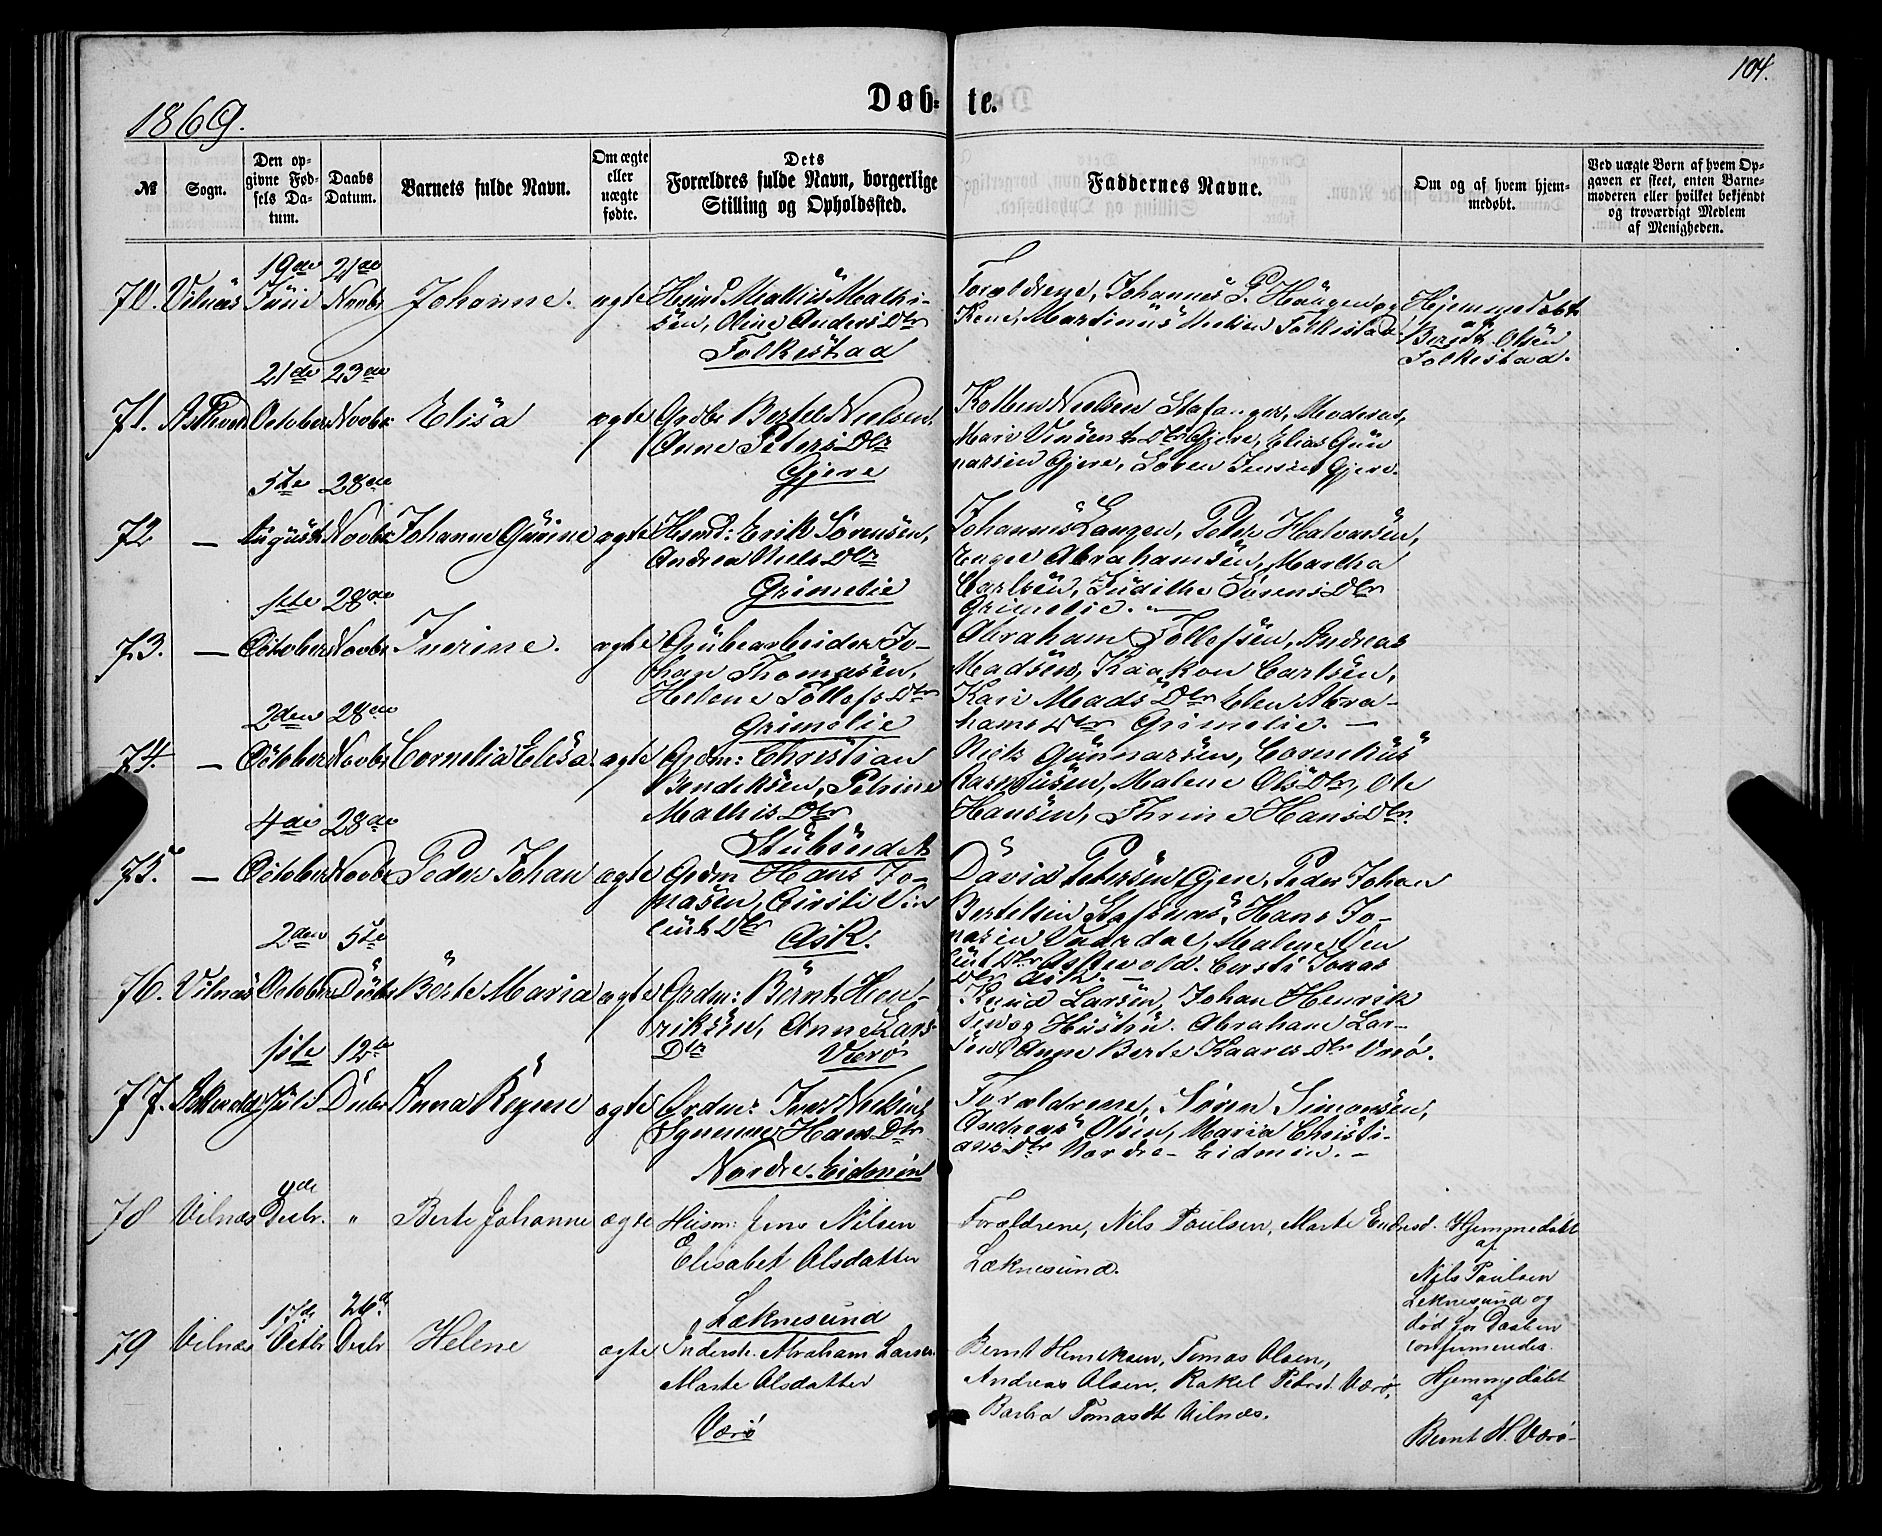 104.
1869.
Døb- te.
№
Sogn.
Den op-
givne Fød-
sels Da-
tum.
Daabs
Datum.
Barnets fulde Navn.
Om ægte
eller
uægte
fødte.
Dets
Forældres fulde Navn, borgerlige
Stilling og Opholdssted.
Faddernes Navne.
Om og af hvem hjem-
medøbt.
Ved uægte Børn af hvem Op-
gaven er skeet, enten Barne-
moderen eller hvilket bekjendt
og troværdigt Medlem
af Menigheden.
19de 21de
70. Vilnæs Juni Novbr Johanne. ægte Husmd Mathis Mathi-
sen, Oline Anders Dtr
Folkestad
Forældrene, Johannes P. Haugen og
Kone, Martinus Folkestad.
Hjemmedøbt
af
Bernt Olsen
Folkestad.
21de 23de
71. Askevold October Novbr Elisa ægte Grdbr Bertel Nielsen,
Anne Peters Dtr
Gjere
Kolben Nielsen Stafanger, Moderen,
Mari Vinsents Dtr Gjere, Elias Gun
narsen Gjere, Søren Jensen Gjere.
5te 28de
72 — August Novbr Johanne Gurine ægte Husmd: Erik Sørensen,
Andrea Niels Dtr
Grimelie
Johannes Langen, Peter Halvorsen,
Enger Abrahamsen, Martha
Carlsen, Judithe Sørens Dtr
Grimelie.
1ste 28de
73. — October Novbr Inerine. ægte Grubearbeider Jo-
han Thomasen,
Helene Tollefs Dtr
Grimelie
Abraham Tollefsen, Andreas
Madsen, Haakon Carlsen,
Kari Mads Dtr Elen Abra-
hams Dtr Grimelie. —
2den 28de
74. — October Novbr Cornelia Elisa. ægte Grdm: Christian
Bendiksen, Petrine
Mathis Dtr
Stubseidet
Niels Gunnarsen, Cornelius
Rasmusen, Malene Ols Dtr, Ole
Hansen, Thrine Hans Dtr.
4de 28de
75. — October Novbr Peder Johan ægte Grdm Hans Jo-
nasen, Cirsti Vin
cents Dtr
Ask.
David Petersen Gjere, Peder Johan
Bertelsen Stafsnes, Hans Jo-
nasen Vaardal, Malene Ven
Dtr Askevold. Cersti Jonas
Dtr Ask. —
2den 5te
76. Vilnæs October Decbr Berte Maria ægte Grdm: Bernt Hen-
riksen, Anne Lars
Dtr
Værø
Knud Larsen, Johan Henrik
sen og Hustru. Abraham Lar-
sen, Anne Berte Kaares Dtr Værø.
1ste 12te
77. Askevold Juli Decbr Anna Regine ægte Grdm: Iver Nielsen,
Synneve Hans Dtr
Nordre-Eidmin
Forældrene, Søren Simonsen,
Andreas Olsen, Maria Christi-
ans Dtr Nordre-Eidmin. —
9de
78 Vilnæs Decbr. „ Berte Johanne ægte Husm: Jens Nilsen
Elisabet Olsdatter
Læknesund
Forældrene, Nils Paulsen, Marte Endresd.
Læknesund.
Hjemmedøbt
af
Nils Paulsen
Leknesund og
død før Daaben
confirmeredes.
17de 26d.
79 Vilnæs Octbr Decbr Helene ægte Inderst. Abraham Larsen
Marte Olsdatter
Værø
Bernt Henriksen, Tomas Olsen,
Andreas Olsen, Rakel Petersd. Værø,
Barbra Tomasdt Vilnæs.
Hjemmedøbt
af
Bernt H. Værø